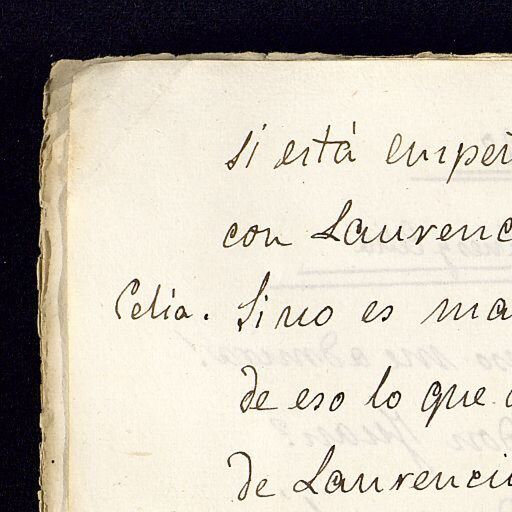 si está empe
con Laurenc
Celia. Si no es ma
de eso lo que
de Laurenci